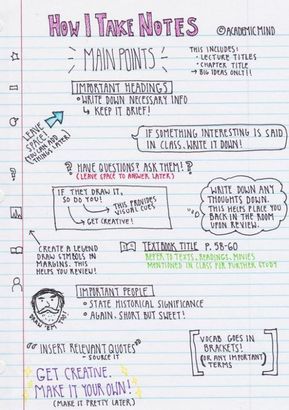 HOW I TAKE NOTES
©ACADEMICMIND
MAIN POINTS
THIS INCLUDES:
• LECTURE TITLES
• CHAPTER TITLE
→ BIG IDEAS ONLY!!
IMPORTANT HEADINGS
• WRITE DOWN NECESSARY INFO
↳ KEEP IT BRIEF!
LEAVE
SPACE!
(YOU CAN ADD
THINGS LATER)
IF SOMETHING INTERESTING IS SAID
IN CLASS, WRITE IT DOWN!
? HAVE QUESTIONS? ASK THEM! ?
(LEAVE SPACE TO ANSWER LATER)
IF THEY DRAW IT,
SO DO YOU!
THIS PROVIDES
VISUAL CUES
GET CREATIVE!
WRITE DOWN ANY
THOUGHTS DOWN.
THIS HELPS PLACE YOU
BACK IN THE ROOM
UPON REVIEW.
CREATE A LEGEND
DRAW SYMBOLS IN
MARGINS. THIS
HELPS YOU REVIEW!
TEXTBOOK TITLE P. 58-60
REFER TO TEXTS, READINGS, MOVIES
MENTIONED IN CLASS FOR FURTHER STUDY
DRAW 'EM TOO!
IMPORTANT PEOPLE
• STATE HISTORICAL SIGNIFICANCE
• AGAIN, SHORT BUT SWEET!
"INSERT RELEVANT QUOTES"
SOURCE IT
VOCAB GOES IN
BRACKETS!
(OR ANY IMPORTANT
TERMS
GET CREATIVE.
MAKE IT YOUR OWN!
(MAKE IT PRETTY LATER)